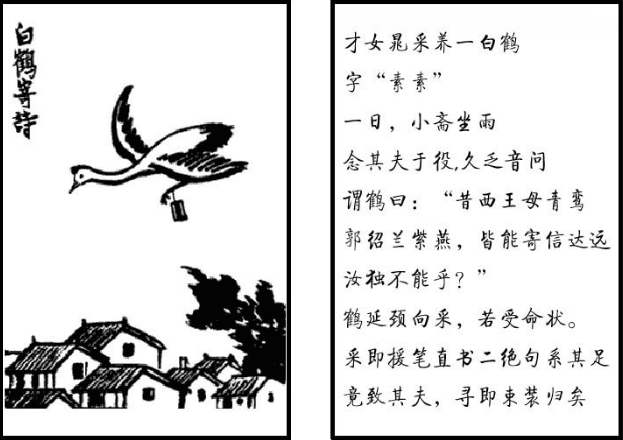 白鹤寄诗
才女晁采养一白鹤
字“素素”
一日，小斋坐雨
念其夫于役,久乏音问
谓鹤曰：“昔西王母青鸾
郭绍兰紫燕，皆能寄信达远
汝独不能乎？”
鹤延颈向采，若受命状。
采即援笔直书二绝句系其足
竟致其夫，寻即束装归矣